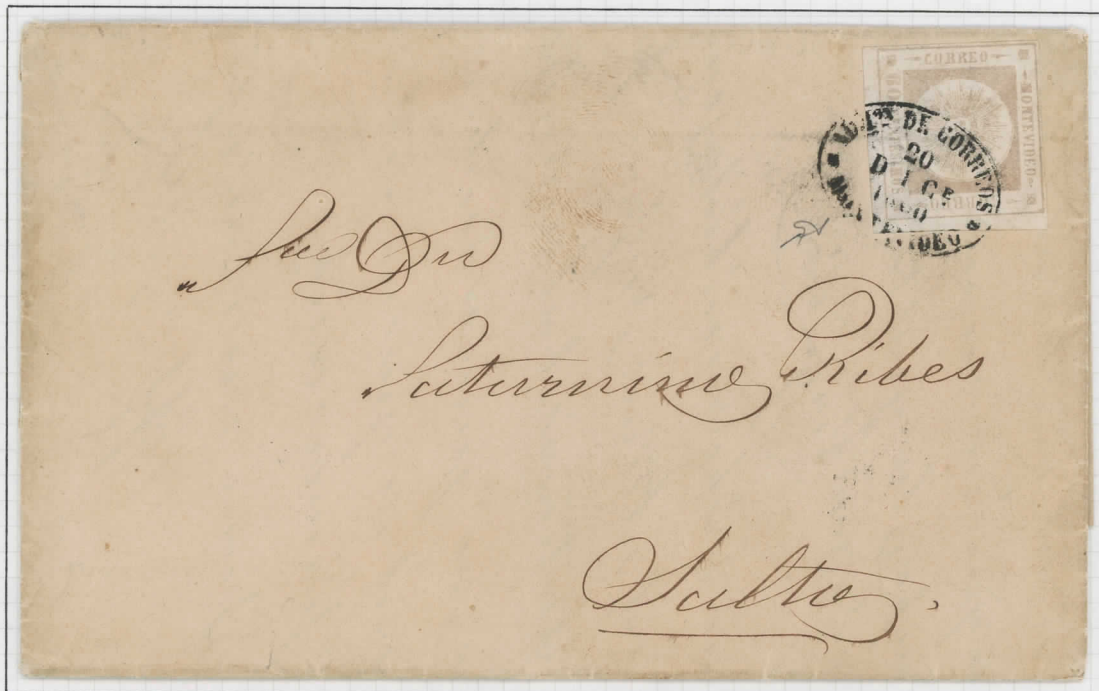 CORREO
MONTEVIDEO
ADMON DE CORREOS
20
DICE
1860
MONTEVIDEO
Saturnino Ribes
Salto.